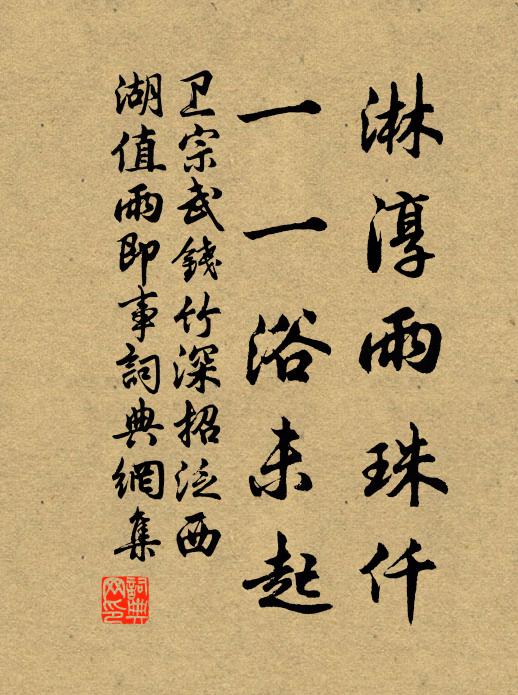 淋淳雨珠仟
一一浴未起
卫宗武錢竹深招泛西
湖值雨即事詞典網集
詞典
网印